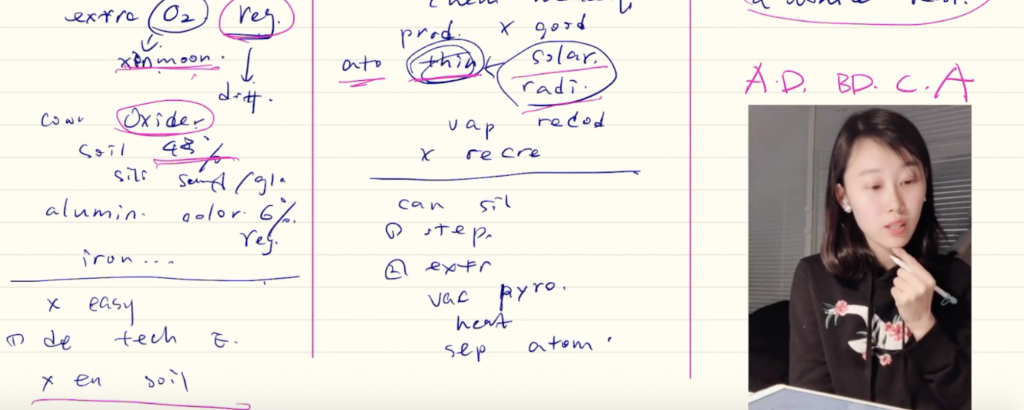 extra O2 reg.
x en moon.
diff.
com Oxider
soil 48%
sili sand/gl.
alumin. color. 6%.
reg.
iron...
x easy
① de tech E.
x en soil
prod. x good
ato thin solar.
radi.
vap recod
x recre
can sil
① step.
② extr
vac pyro.
heat
sep atom.
A.D. BD. C.A